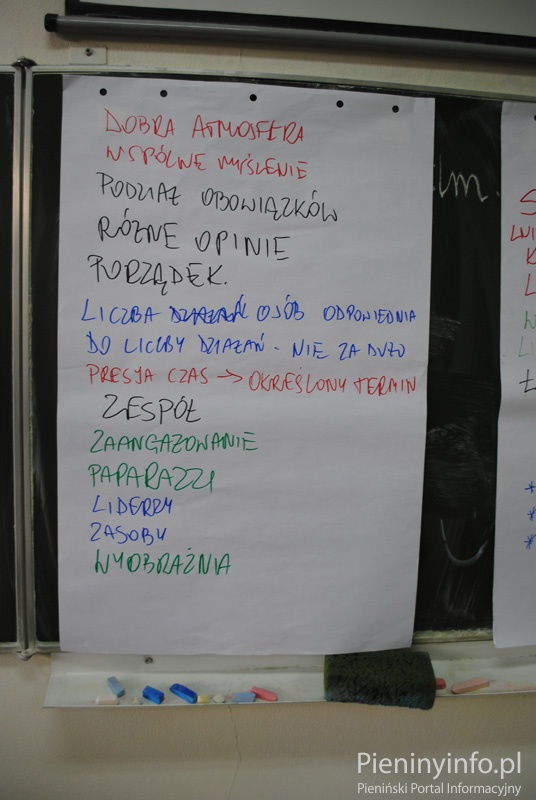 DOBRA ATMOSFERA
WSPÓLNE MYŚLENIE
PODZIAŁ OBOWIĄZKÓW
RÓŻNE OPINIE
PORZĄDEK.
LICZBA OSÓB ODPOWIEDNIA
DO LICZBY DZIAŁAŃ - NIE ZA DUŻO
PRESJA CZAS → OKREŚLONY TERMIN
ZESPÓŁ
ZAANGAZOWANIE
PAPARAZZI
LIDERZY
ZASOBY
WYOBRAŹNIA
Pieninyinfo.pl
Pieniński Portal Informacyjny